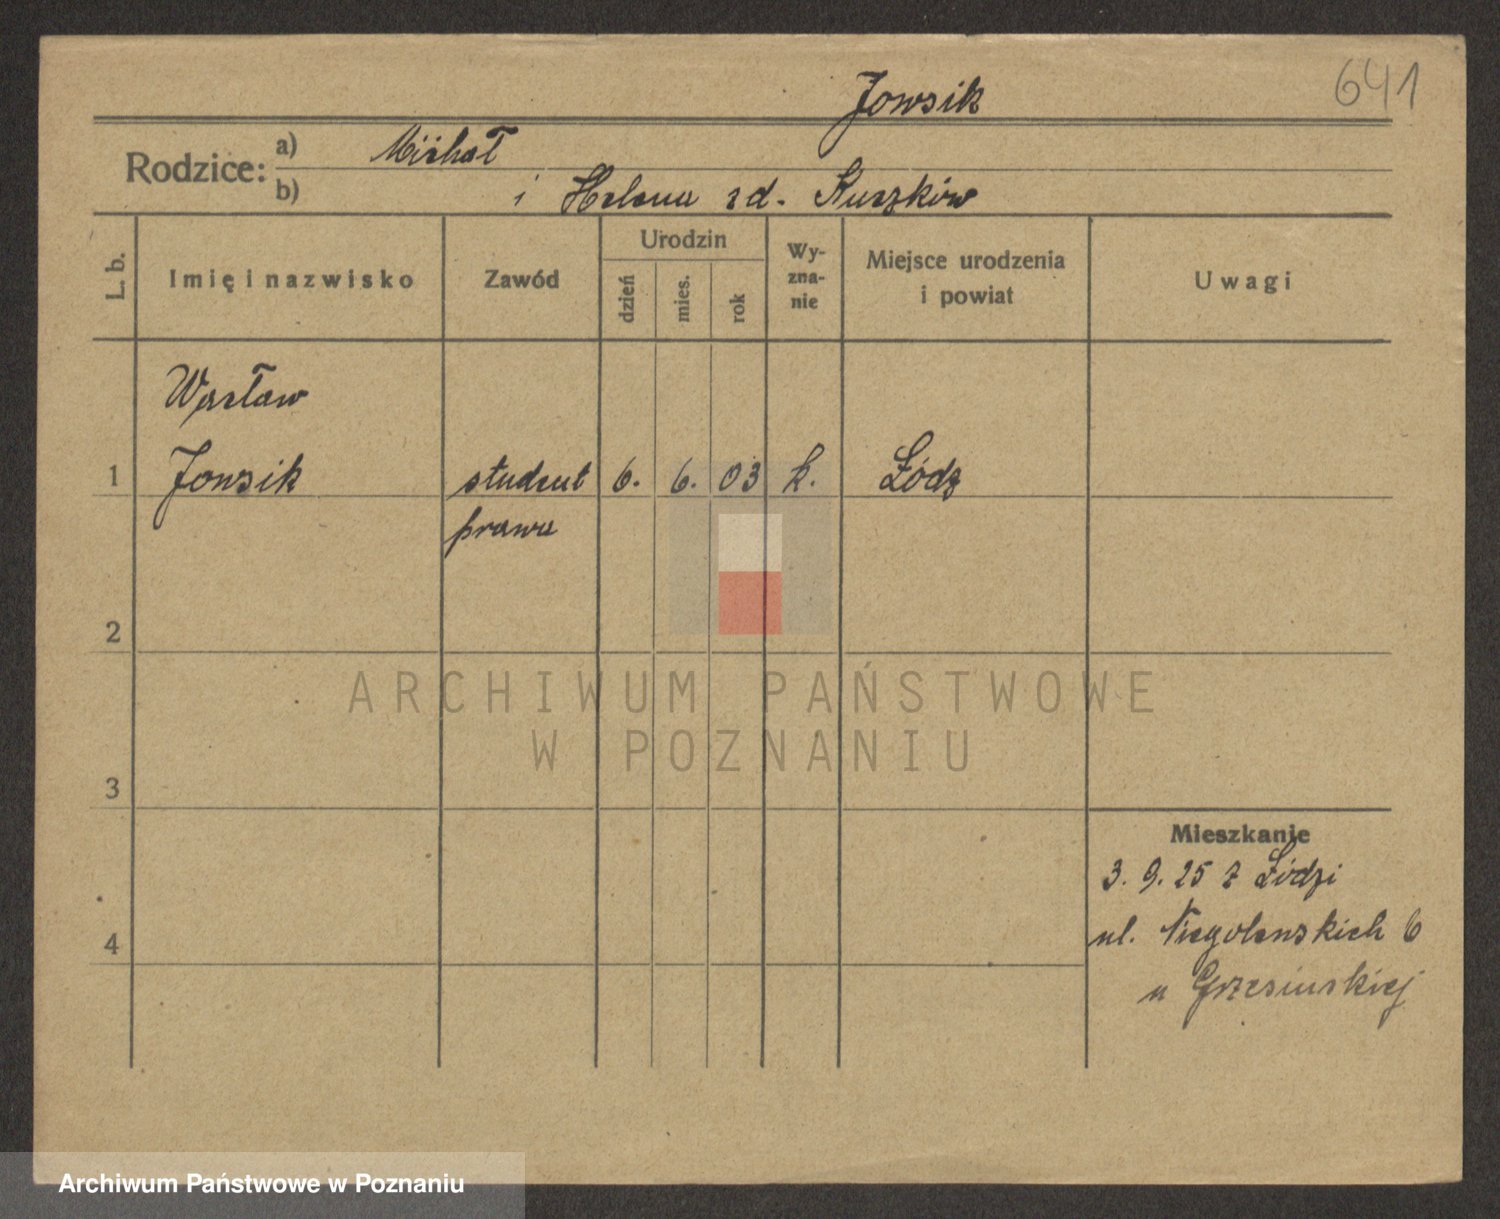 641
Jowsik
Rodzice: a) Michał
b) i Helena zd. Kuszków
L. b. Imię i nazwisko Zawód Urodzin dzień mies. rok Wy-zna-nie Miejsce urodzenia i powiat Uwagi
Wacław
1 Jowsik student 6. 6. 03 k. Łódź
prawa
2
ARCHIWUM PAŃSTWOWE
W POZNANIU
3
Mieszkanie
3. 9. 25 z Łodzi
4 ul. Niegolewskich 6
u
Archiwum Państwowe w Poznaniu